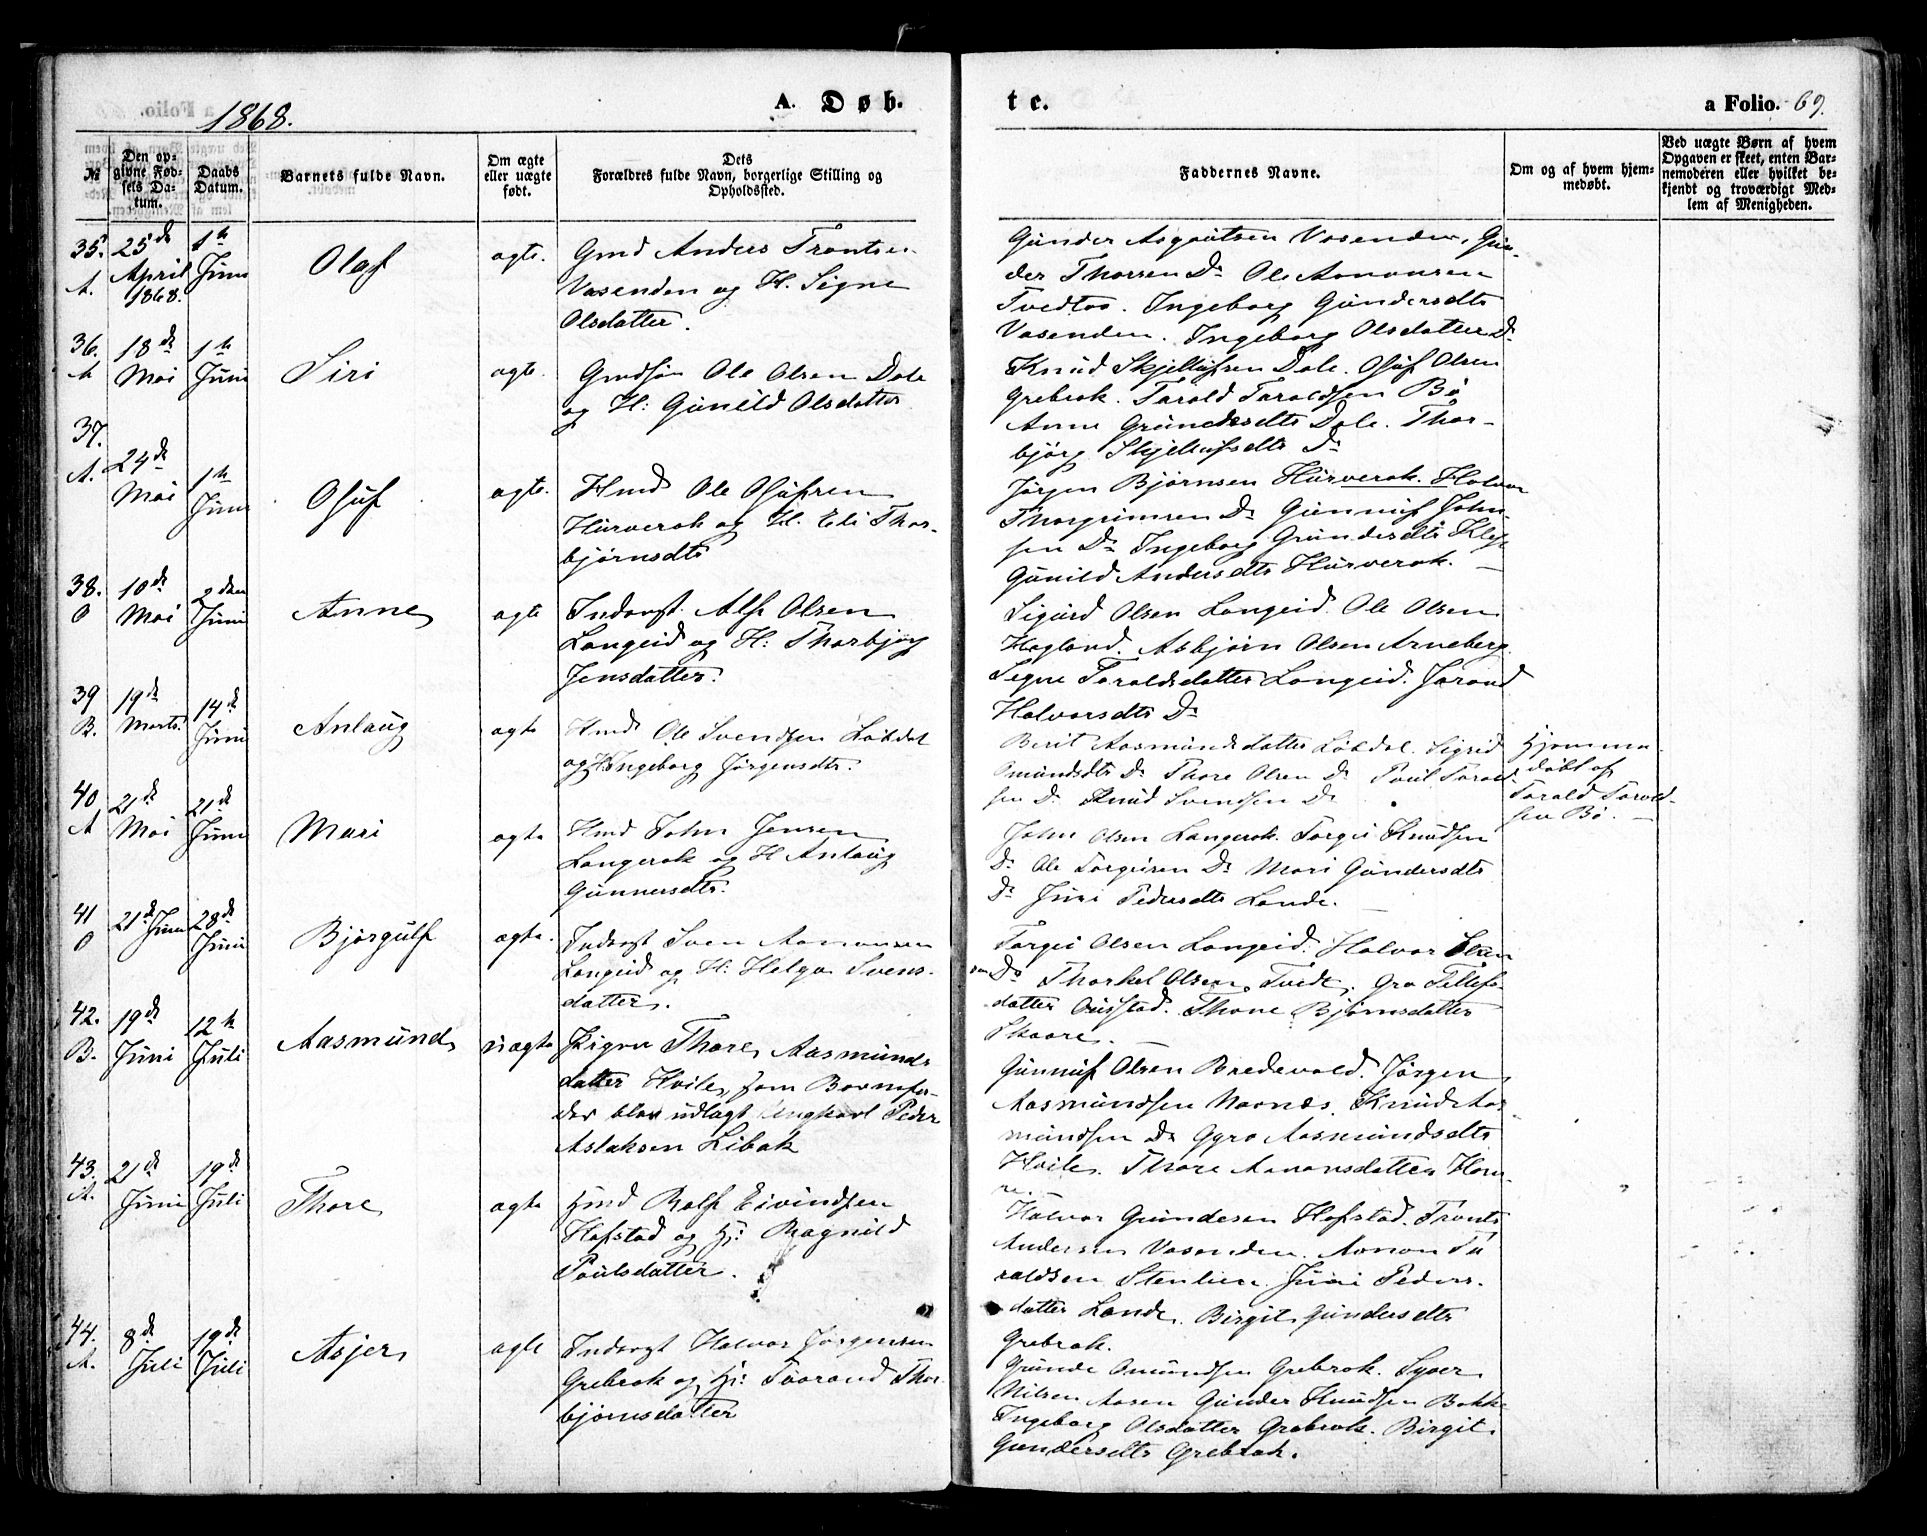 1868.
A. Døb- te.
a Folio. 69.
№
Den opgivne Fødsels Datum.
Daabs Datum.
Barnets fulde Navn.
Om ægte eller uægte født.
Dets Forældres fulde Navn, borgerlige Stilling og Opholdssted.
Faddernes Navne.
Om og af hvem hjemmedøbt.
Ved uægte Børn af hvem Opgaven er skeet, enten Barnemoderen eller hvilket bekjendt og troværdigt Medlem af Menigheden.
35. A. 25de April 1868. 1te Juni
Olaf
ægte.
Gmd Anders Trontsen
Vasenden og H. Signe
Olsdatter.
Gunder Asgoutsen Vasenden, Gun-
der Thorsen Do Ole Aanonsen
Tvedtoe. Ingeborg Gundersdtr
Vasenden. Ingeborg Olsdatter Do
36. A 18de Mai 1te Juni
Siri
ægte.
Gmdsøn Ole Olsen Dale
og H: Gunild Olsdatter
Knud Skjellufsen Dale. Osuf Olsen
Grebrok. Tarald Taraldsen Bø
Anne Gundersdtr Dale. Thor-
bjørg Skjellufsdtr Do
37. A. 24de Mai 1te Juni
Osuf
ægte.
Hmd Ole Osufsen
Hurverok og H. Eli Thor-
bjørnsdtr
Jørgen Bjørnsen Hurverok. Halvor
Thorgrimsen Do Gunnuf John-
sen Do Ingeborg Gundersdtr
Gunild Andersdtr Hurverok. —
38. O 10de Mai 2den Juni
Anne
ægte
Inderst Alf Olsen
Langeid og H: Thorbjørg
Jensdatter.
Sigurd Olsen Langeid. Ole Olsen
Hagland. Asbjørn Olsen Arneberg
Signe Taraldsdatter Langeid. Jorand
Halvorsdtr Do
39 B. 19de Marts. 14de Juni
Anlaug
ægte
Hmd Ole Svendsen Løkdal
og H: Ingeborg Jørgensdtr.
Berit Aasmundsdatter Løkdal. Sigrid
Omundsdtr Do Thore Olsen Do Poul Tarald-
sen Do Knud Svendsen Do
Hjemme-
døbt af
Tarald Tarald-
sen Bø. —
40. A 21de Mai 21de Juni
Mari
ægte
Hmd John Jensen
Langerok og H Anlaug
Gunnufsdtr.
John Olsen Langerok. Torgei Knudsen
Do Ole Torgeisen Do Mari Gundersdtr
Do Juri Pedersdtr Lande. —
41 O 21de Juni 28de Juni
Bjørgulf
ægte.
Inderst Sven Aanonsen
Langeid og H: Helga Svens-
datter.
Torgei Olsen Langeid. Halvor
Do Thorkel Olsen Tvedt. Gro Tellefs-
datter Thone Bjørnsdatter
Skaare. —
42. B. 19de Juni 12te Juli
Aasmund
uægte
Pigen Thore Aasmunds
datter Hvile, som Barnefa-
der blev udlagt Ungkarl Peder
Aslaksen Libak
Gunnuf Olsen Bredevold. Jørgen
Aasmundsen Naanes. Knud Aas-
mundsen Do Gyro Aasmundsdtr
Hvile. Thore Aanonsdatter Hom-
43. A. 21de Juni 19de Juli
Thore
ægte
Hmd Rolf Eivindsen
Hofstad og H: Ragnild
Poulsdatter.
Halvor Gundersen Hofstad. Tront
Andersen Vasenden. Aanon Ta-
raldsen Stenlien. Juri Peders-
datter Lande. Birgit Gundersdtr
Grebrok.
44. A. 8de Juli 19de Juli
Asjer
ægte
Inderst Halvor Jørgensen
Grebrok og H: Taarand Thor-
bjørnsdatter
Gunde Omundsen Grebrok. Syver
Nilsen Aasen Gunder Knudsen Bakke
Ingeborg Olsdatter Grebrok. Birgit
Gundersdtr Grebrok.